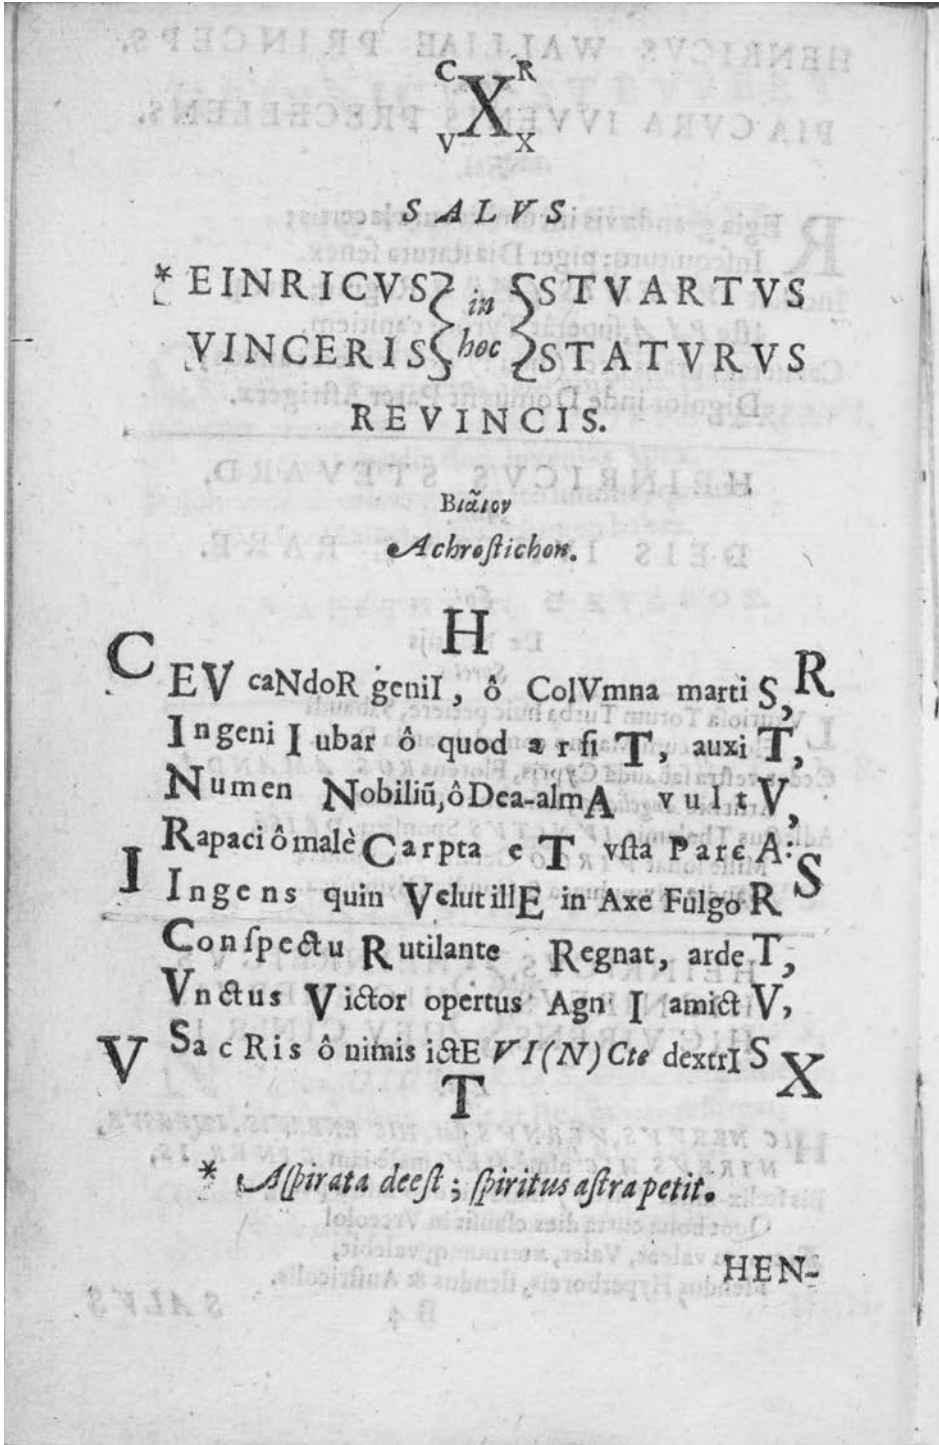 C R
X
V X
SALVS
* EINRICVS in STVARTVS
VINCERIS hoc STATVRVS
REVINCIS.
Βιαῖον
Achroſtichon.
H
C R
EV caNdoR geniI, ô ColVmna martiS,
IngeniI ubar ô quod arſiT, auxiT,
Numen Nobiliū, ô Dea-almA vultV,
Rapaci ô malè Carpta eT vſta ParcA:
I S
Ingens quin VelutillE in Axe FulgoR
Conſpectu Rutilante Regnat, ardeT,
Vnctus Victor opertus AgnI amictV,
SacRis ô nimis ictE VI(N)Cte dextrIS
V X
T
* Aſpirata deeſt; ſpiritus aſtra petit.
HEN-